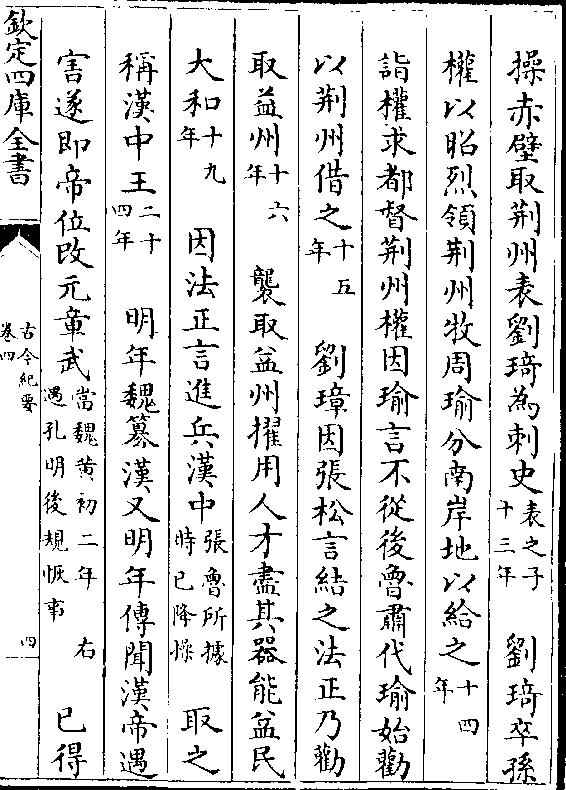 操赤壁取荆州表劉琦為刺史表之子十三年 劉琦卒孫
權以昭烈領荆州牧周瑜分南岸地以給之十四年
詣權求都督荆州權因瑜言不從後魯肅代瑜始勸
以荆州借之十五年 劉璋因張松言結之法正乃勸
取益州十六年 襲取益州擢用人才盡其器能益民
大和十九年 因法正言進兵漢中張魯所據時已降操 取之
稱漢中王二十四年 明年魏篡漢又明年傳聞漢帝遇
害遂即帝位改元章武當魏黄初二年 右遇孔明後規恢事 已得
欽定四庫全書
古今紀要
卷四
四